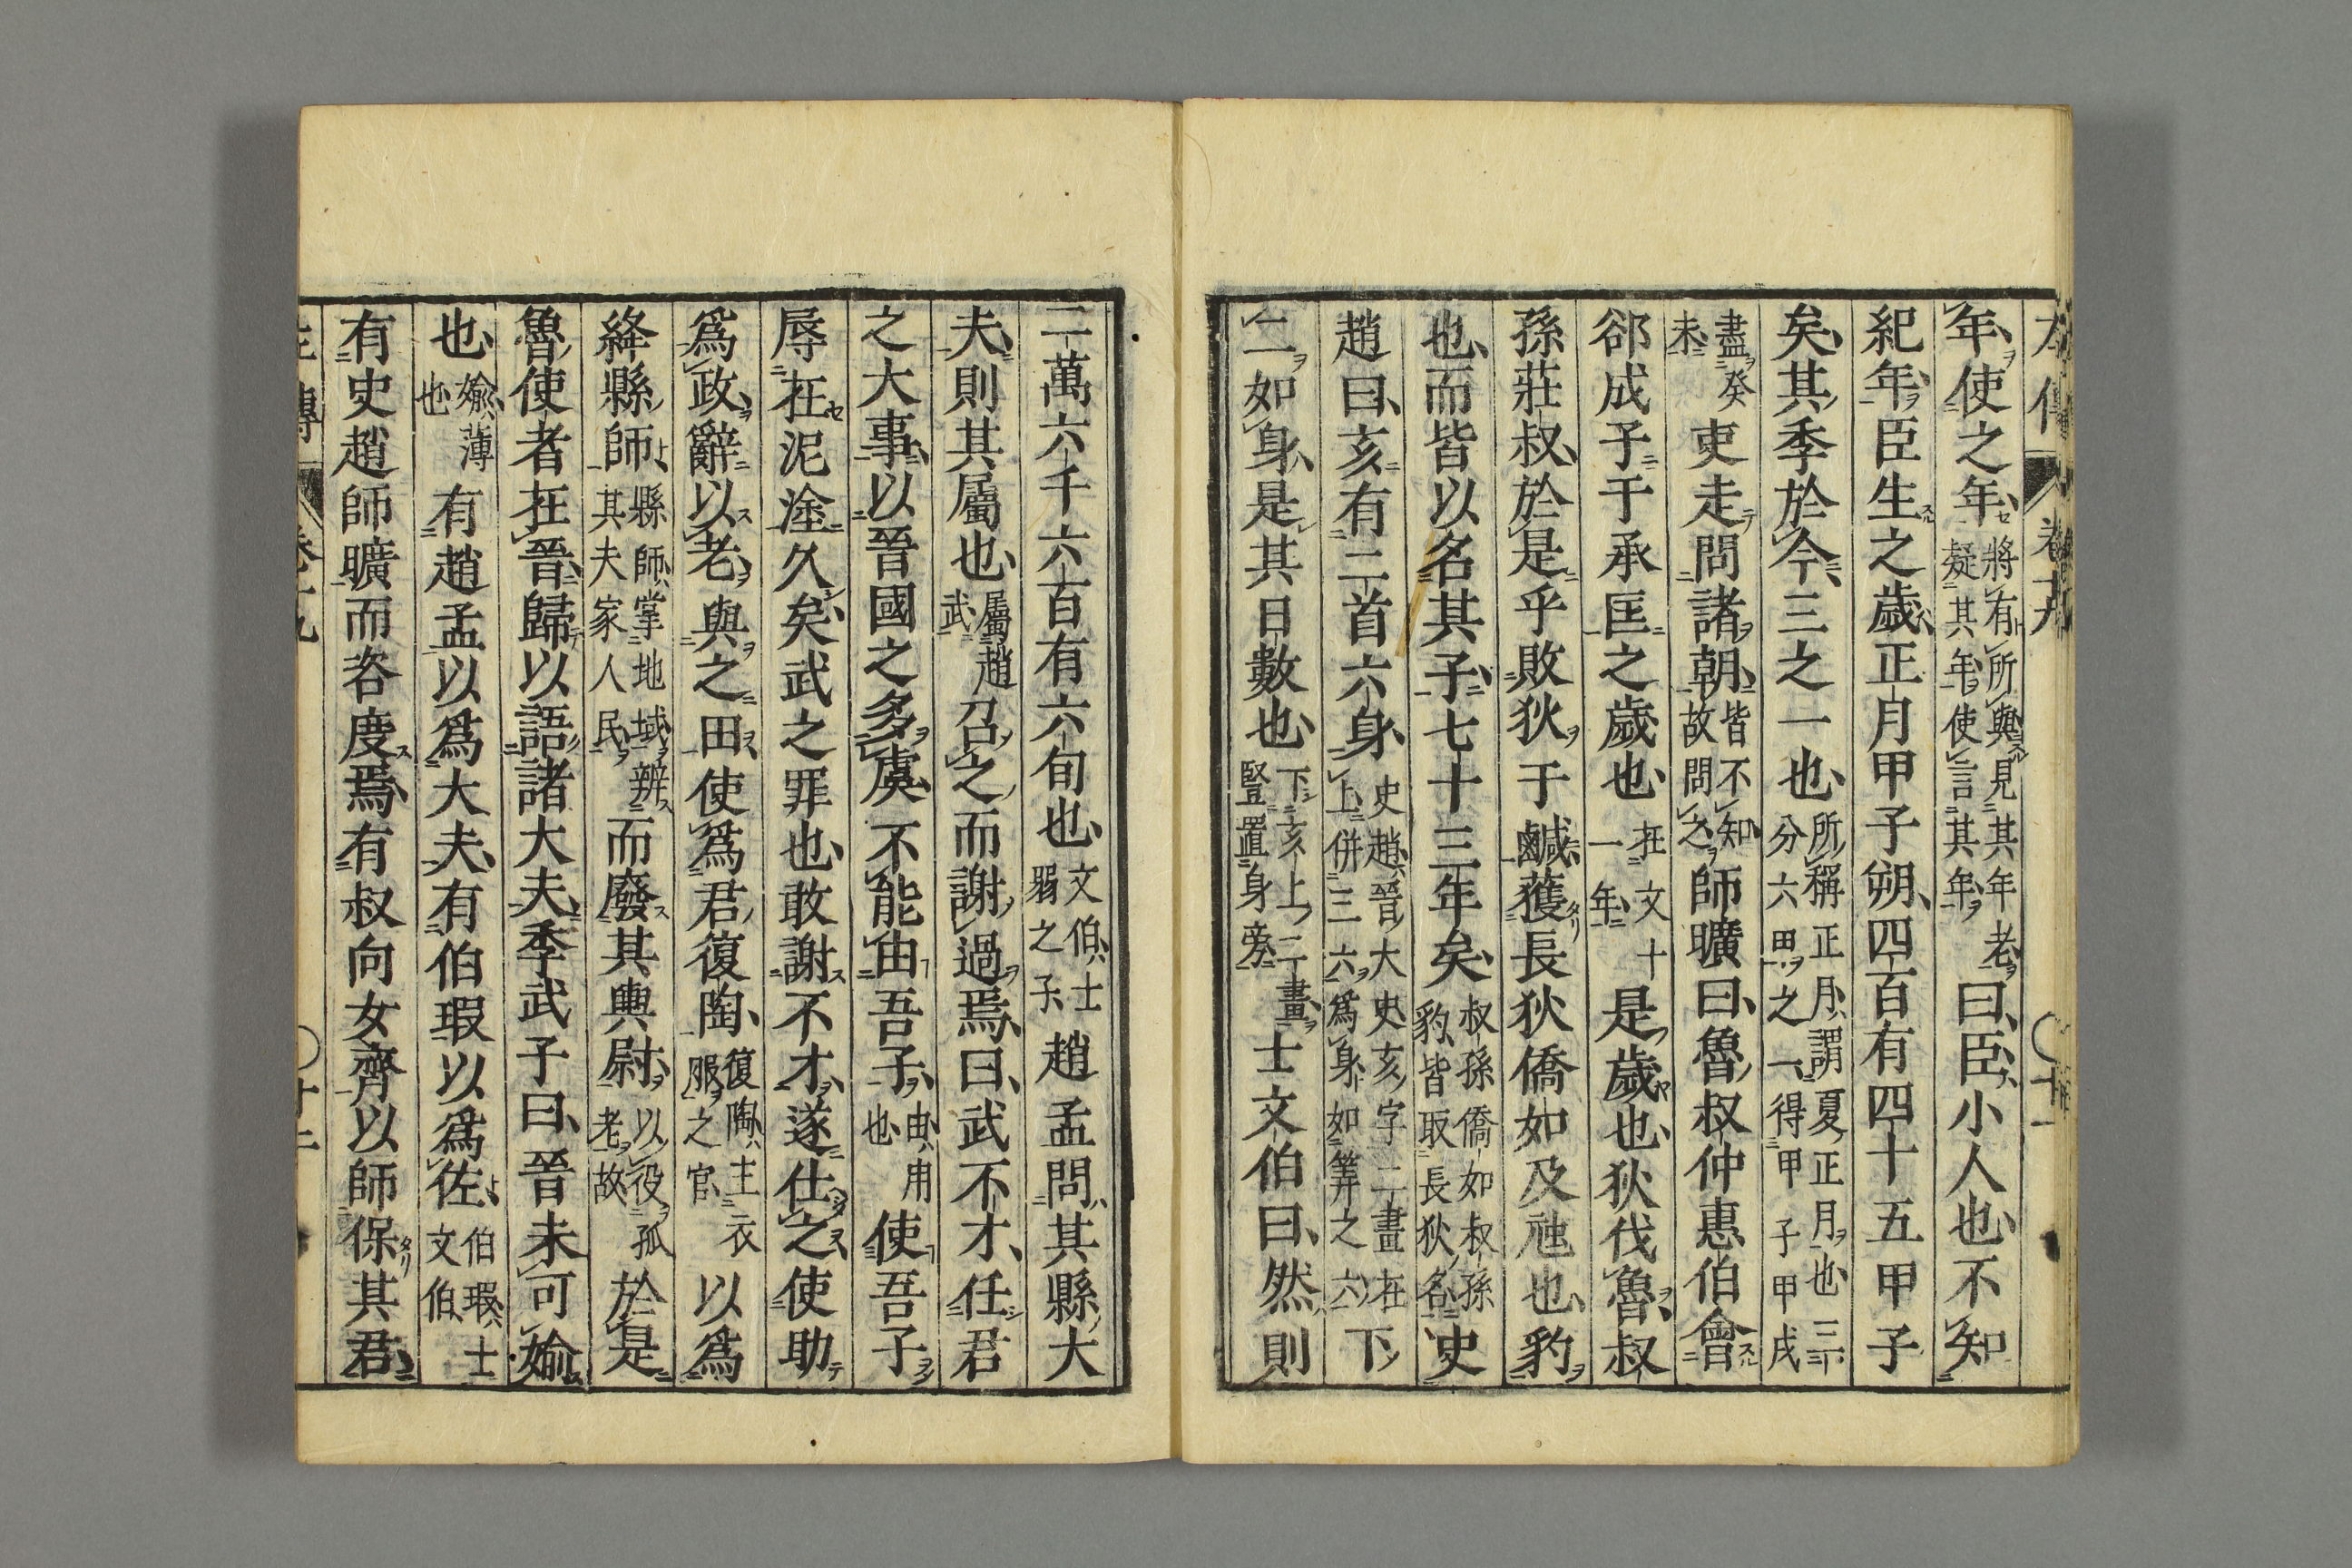 左傳 卷十九 〇十一
年使之年將有所與見其年老疑其年使言其年曰臣小人也不知
紀年臣生之歲正月甲子朔四百有四十五甲子
矣其季於今三之一也所稱正月謂夏正月也三分六甲之一得甲子甲戌
盡癸未吏走問諸朝皆不知故問之師曠曰魯叔仲惠伯會
郤成子于承匡之歲也在文十一年是歲也狄伐魯叔
孫莊叔於是乎敗狄于鹹獲長狄僑如及虺也豹
也而皆以名其子七十三年矣叔孫僑如叔孫豹皆取長狄名史
趙曰亥有二首六身史趙晉大史亥字二畫在上併三六爲身如筭之六下
二如身是其日數也下亥上二畫豎置身旁士文伯曰然則
二萬六千六百有六旬也文伯士弱之子趙孟問其縣大
夫則其屬也屬趙武召之而謝過焉曰武不才任君
之大事以晉國之多虞不能由吾子由用也使吾子
辱在泥塗久矣武之罪也敢謝不才遂仕之使助
爲政辭以老與之田使爲君復陶復陶主衣服之官以爲
絳縣師縣師掌地域辨其夫家人民而廢其輿尉以役孤老故於是
魯使者在晉歸以語諸大夫季武子曰晉未可媮
也媮薄也有趙孟以爲大夫有伯瑕以爲佐伯瑕士文伯
有史趙師曠而咨度焉有叔向女齊以師保其君
左傳 卷十九 〇十二